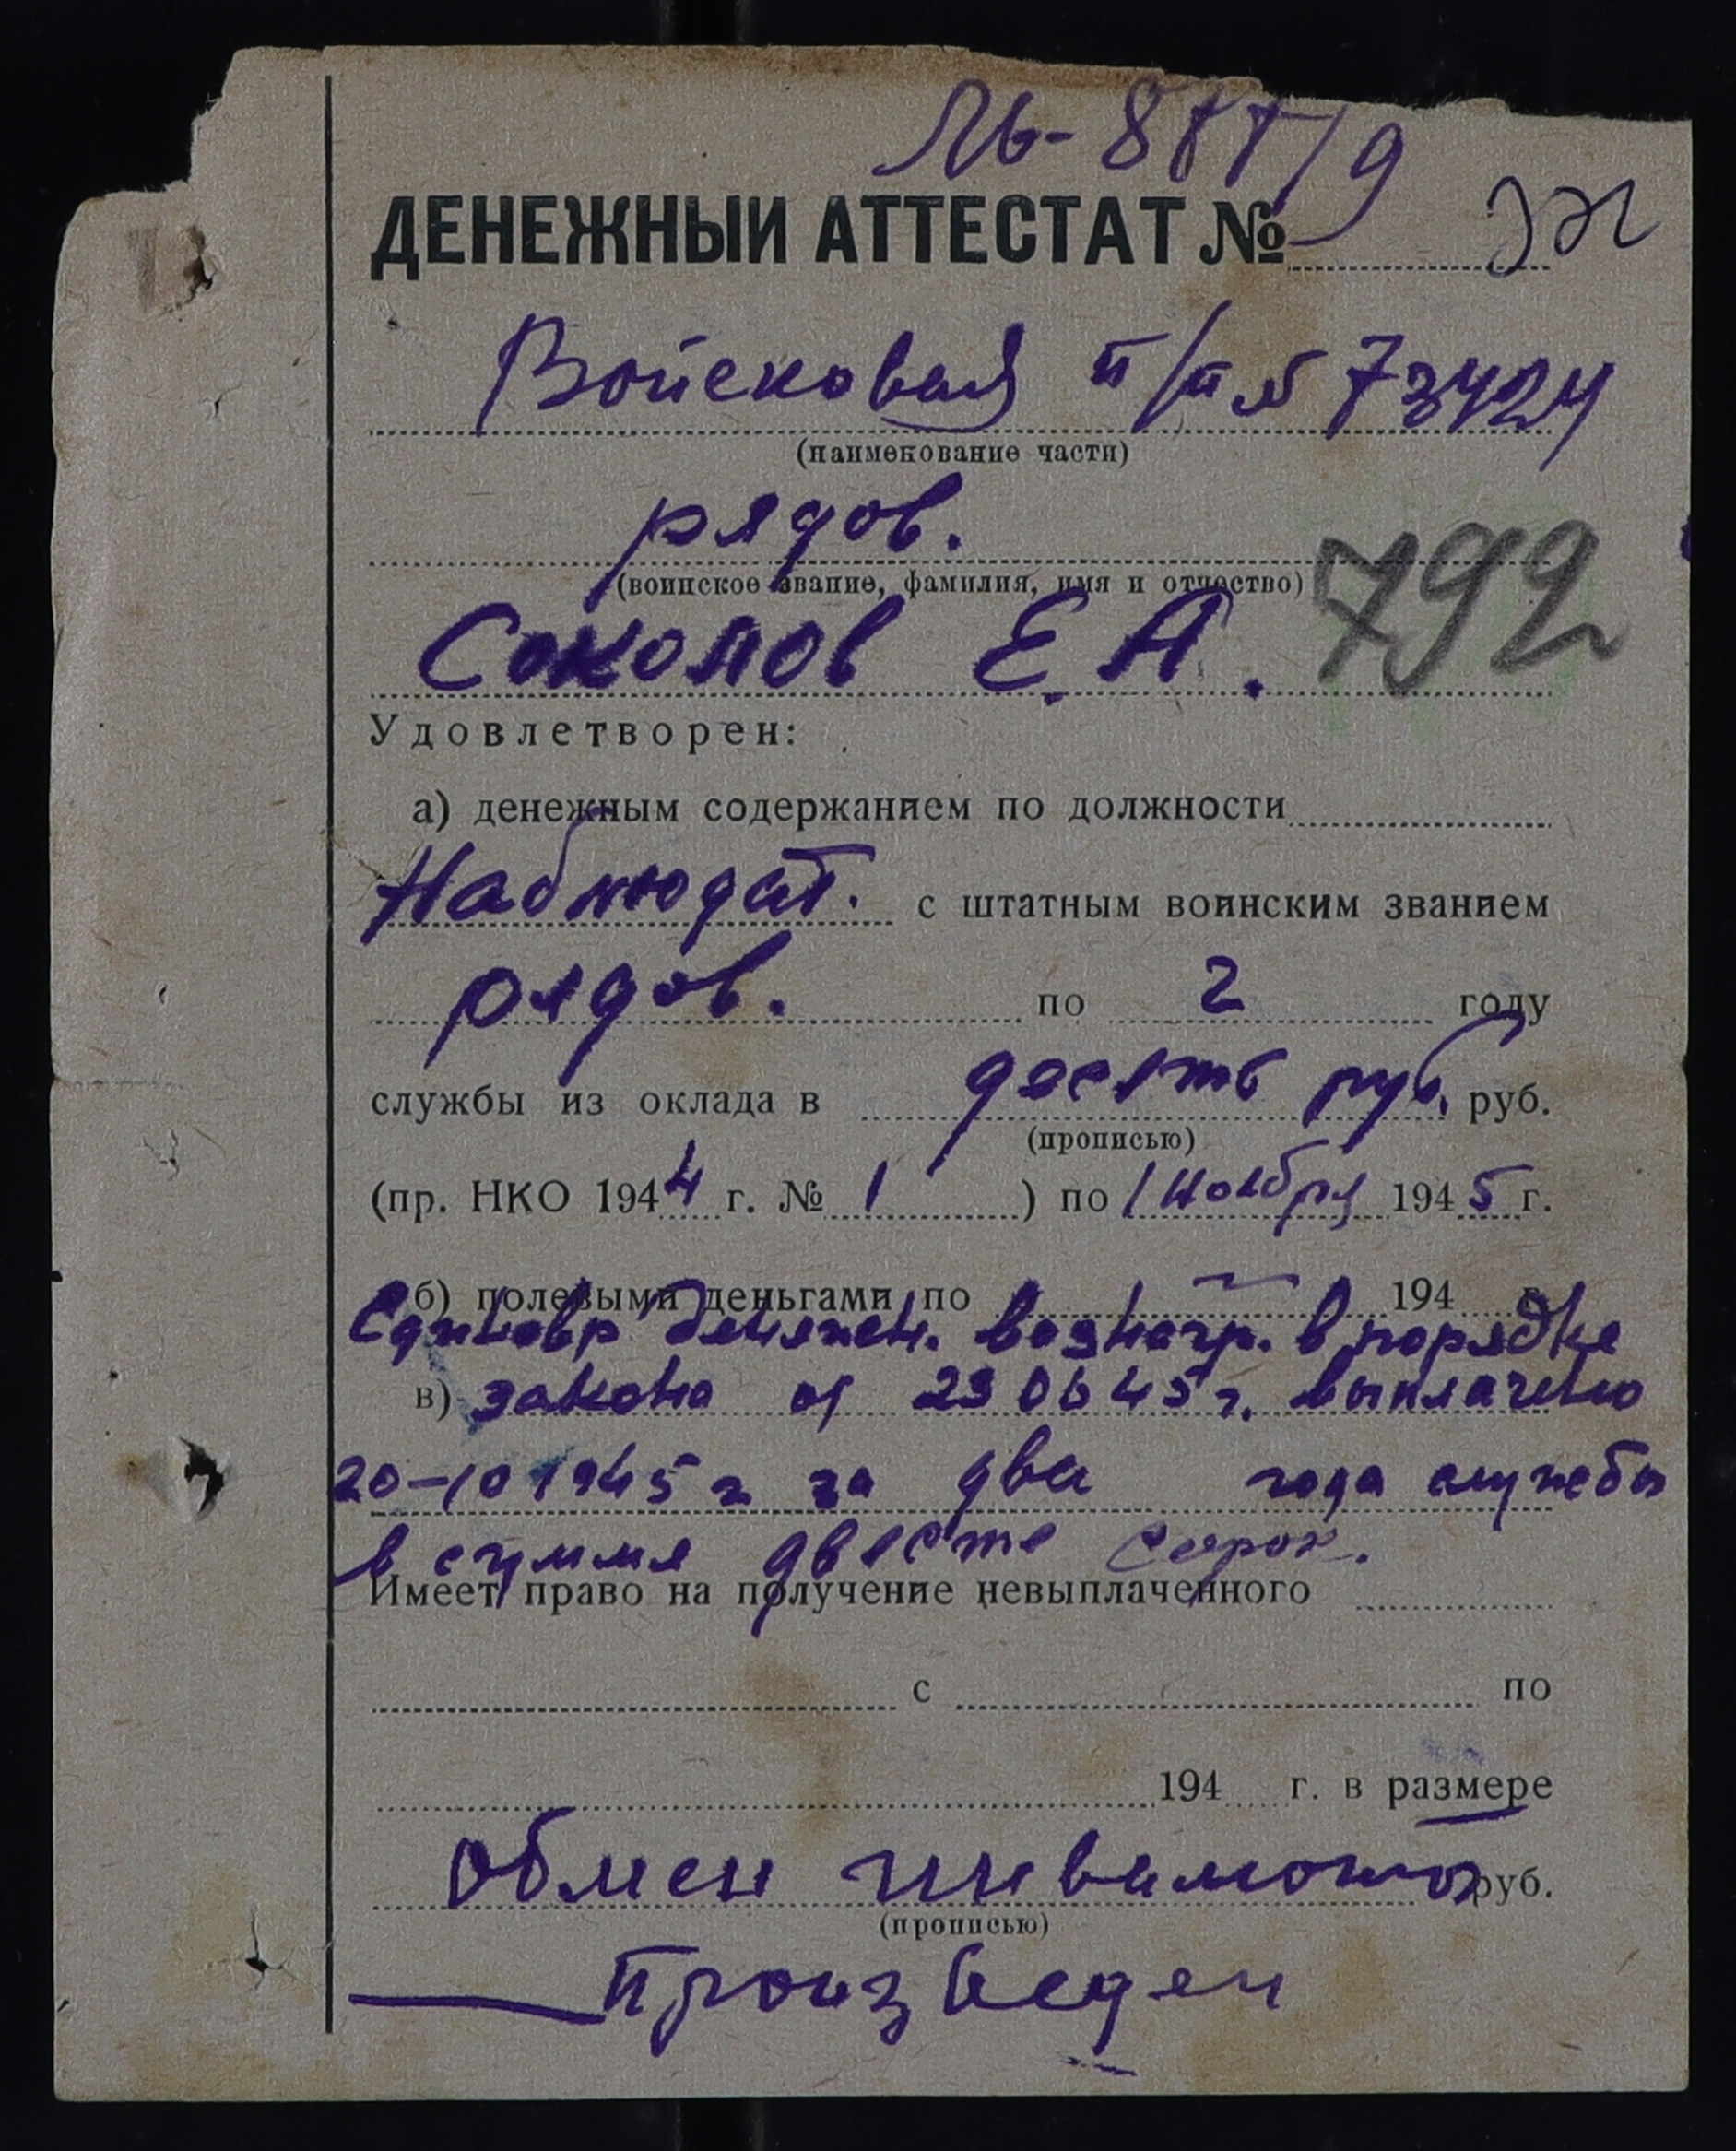 ДЕНЕЖНЫЙ АТТЕСТАТ №
Войсковая п/п № 73424
(наименование части)
рядов.
(воинское звание, фамилия, имя и отчество)
792
Соколов Е. А.
Удовлетворен:
а) денежным содержанием по должности
Наблюдат. с штатным воинским званием
рядов. по 2 году
службы из оклада в десять руб. руб.
(прописью)
(пр. НКО 1944 г. № 1 ) по 1 Ноября 1945 г.
б) полевыми деньгами по 194 г.
Единовр денежн. вознагр. в порядке
в) закона от 23 06 45 г. выплачено
20-10 1945 г за два года службы
в сумме двести сорок.
Имеет право на получение невыплаченного
с по
194 г. в размере
Обмен руб.
(прописью)
Произведен